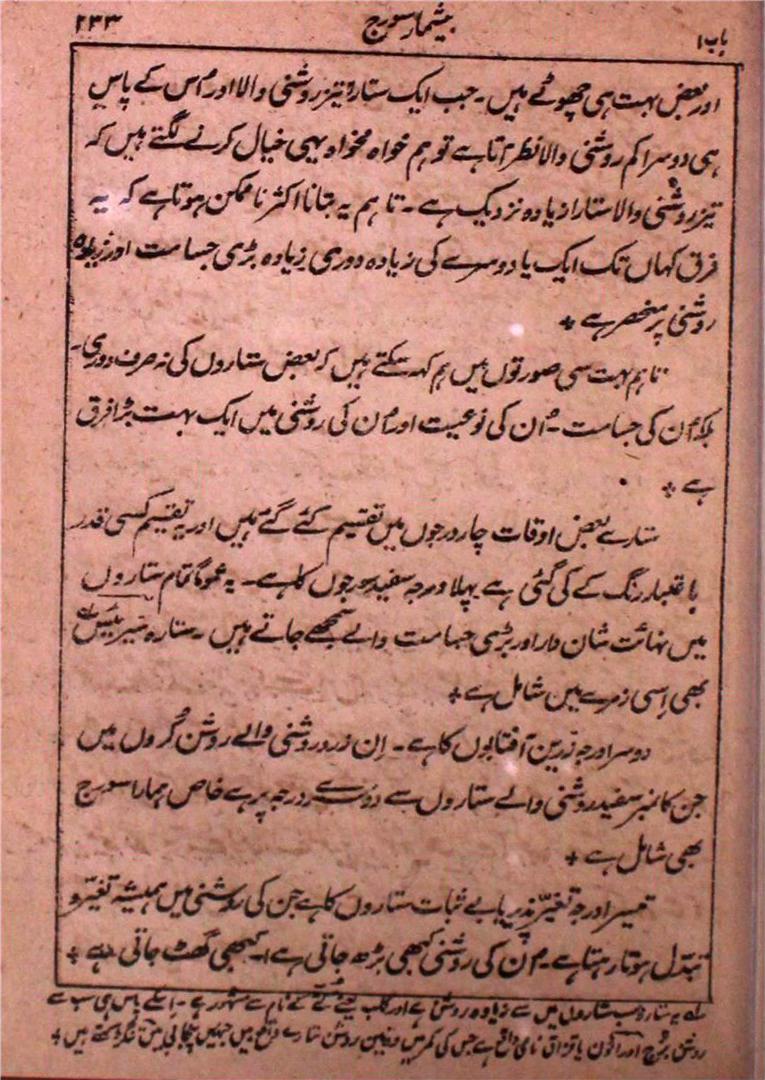 باب ۱ بیشمار سورج ۲۳۳
اور بعض بہت ہی چھوٹے ہیں۔ جب ایک ستارہ تیز روشنی والا اور اُس کے پاس
ہی دوسرا کم روشنی والا نظر آتا ہے تو ہم خواہ مخواہ یہی خیال کرنے لگتے ہیں کہ
تیز روشنی والا ستارا زیادہ نزدیک ہے۔ تاہم یہ بتانا اکثر ناممکن ہوتا ہے کہ یہ
فرق کہاں تک ایک یا دوسرے کی زیادہ دوری زیادہ بڑی جسامت اور زیادہ
روشنی پر منحصر ہے +
تاہم بہت سی صورتوں میں ہم کہہ سکتے ہیں کہ بعض ستاروں کی نہ صرف دوری۔
بلکہ اُن کی جسامت۔ اُن کی نوعیت اور اُن کی روشنی میں ایک بہت بڑا فرق
ہے +
ستارے بعض اوقات چار درجوں میں تقسیم کئے گئے ہیں اور یہ تقسیم کسی قدر
باعتبار رنگ کے کی گئی ہے پہلا درجہ سفید سورجوں کا ہے۔ یہ عموماً تمام ستاروں
میں نہائت شان دار اور بڑی جسامت والے سمجھے جاتے ہیں۔ ستارہ سیریئس
بھی اِسی زمرے میں شامل ہے +
دوسرا درجہ زرین آفتابوں کا ہے۔ اِن زرد روشنی والے روشن کُروں میں
جن کا نمبر سفید روشنی والے ستاروں سے دوسرے درجہ پر ہے خاص ہمارا سورج
بھی شامل ہے +
تیسرا درجہ تغیّر پذیر یا بے ثبات ستاروں کا ہے جن کی روشنی میں ہمیشہ تغیّر و
تبدّل ہوتا رہتا ہے۔ اُن کی روشنی کبھی بڑھ جاتی ہے۔ کبھی گھٹ جاتی ہے +
یہ ستارہ سب ستاروں میں سے زیادہ روشن ہے اور کلب یعنے کُتّے کے نام سے مشہور ہے۔ اِسکے پاس ہی سب سے
روشن بُرج اورائون یا قزاق نامی واقع ہے جس کی کمر میں تین روشن ستارے واقع ہیں جنہیں پنجابی میں کہتے ہیں +